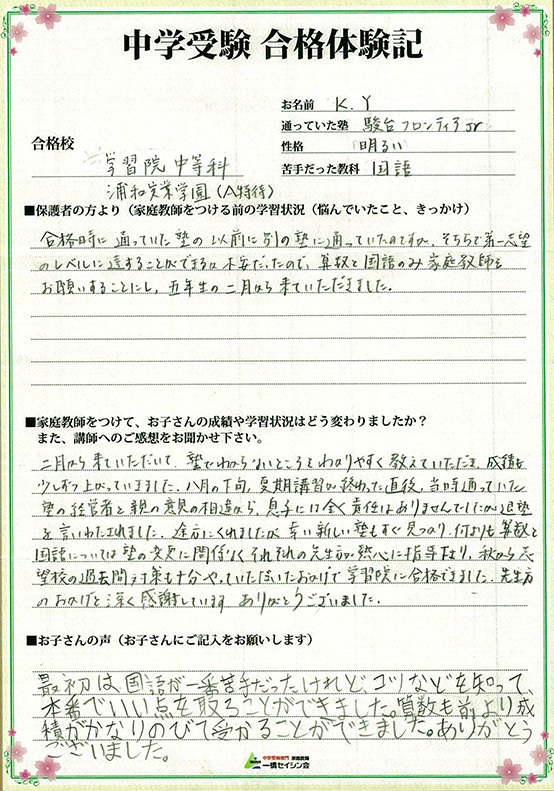 中学受験 合格体験記
お名前 K.Y
通っていた塾 駿台フロンティアJr
合格校
性格 明るい
学習院中等科
苦手だった教科 国語
浦和実業学園(A特待)
■保護者の方より(家庭教師をつける前の学習状況(悩んでいたこと、きっかけ)
合格時に通っていた塾の以前に別の塾に通っていたのですが、そちらで第一志望
のレベルに達することができるか不安だったので、算数と国語のみ家庭教師を
お願いすることにし、五年生の二月から来ていただきました。
■家庭教師をつけて、お子さんの成績や学習状況はどう変わりましたか?
また、講師へのご感想をお聞かせ下さい。
二月から来ていただいて、塾でわからないところをわかりやすく教えていただき、成績も
少しずつ上がっていきました。八月の下旬、夏期講習が終わった直後、当時通っていた
塾の経営者と親の意見の相違から、息子には全く責任はありませんでしたが退塾
を言いわたされました。途方にくれましたが、幸い新しい塾もすぐ見つかり、何よりも算数と
国語については塾の変更に関係なくそれぞれの先生が熱心に指導下さり、秋から志
望校の過去問対策も十分やっていただいたおかげで学習院に合格できました。先生方
のおかげと深く感謝しています ありがとうございました。
■お子さんの声(お子さんにご記入をお願いします)
最初は国語が一番苦手だったけれど、コツなどを知って、
本番でいい点を取ることができました。算数も前より成
積がかなりのびて受かることができました。ありがとう
ございました。
中学受験専門 家庭教師
一橋セイシン会